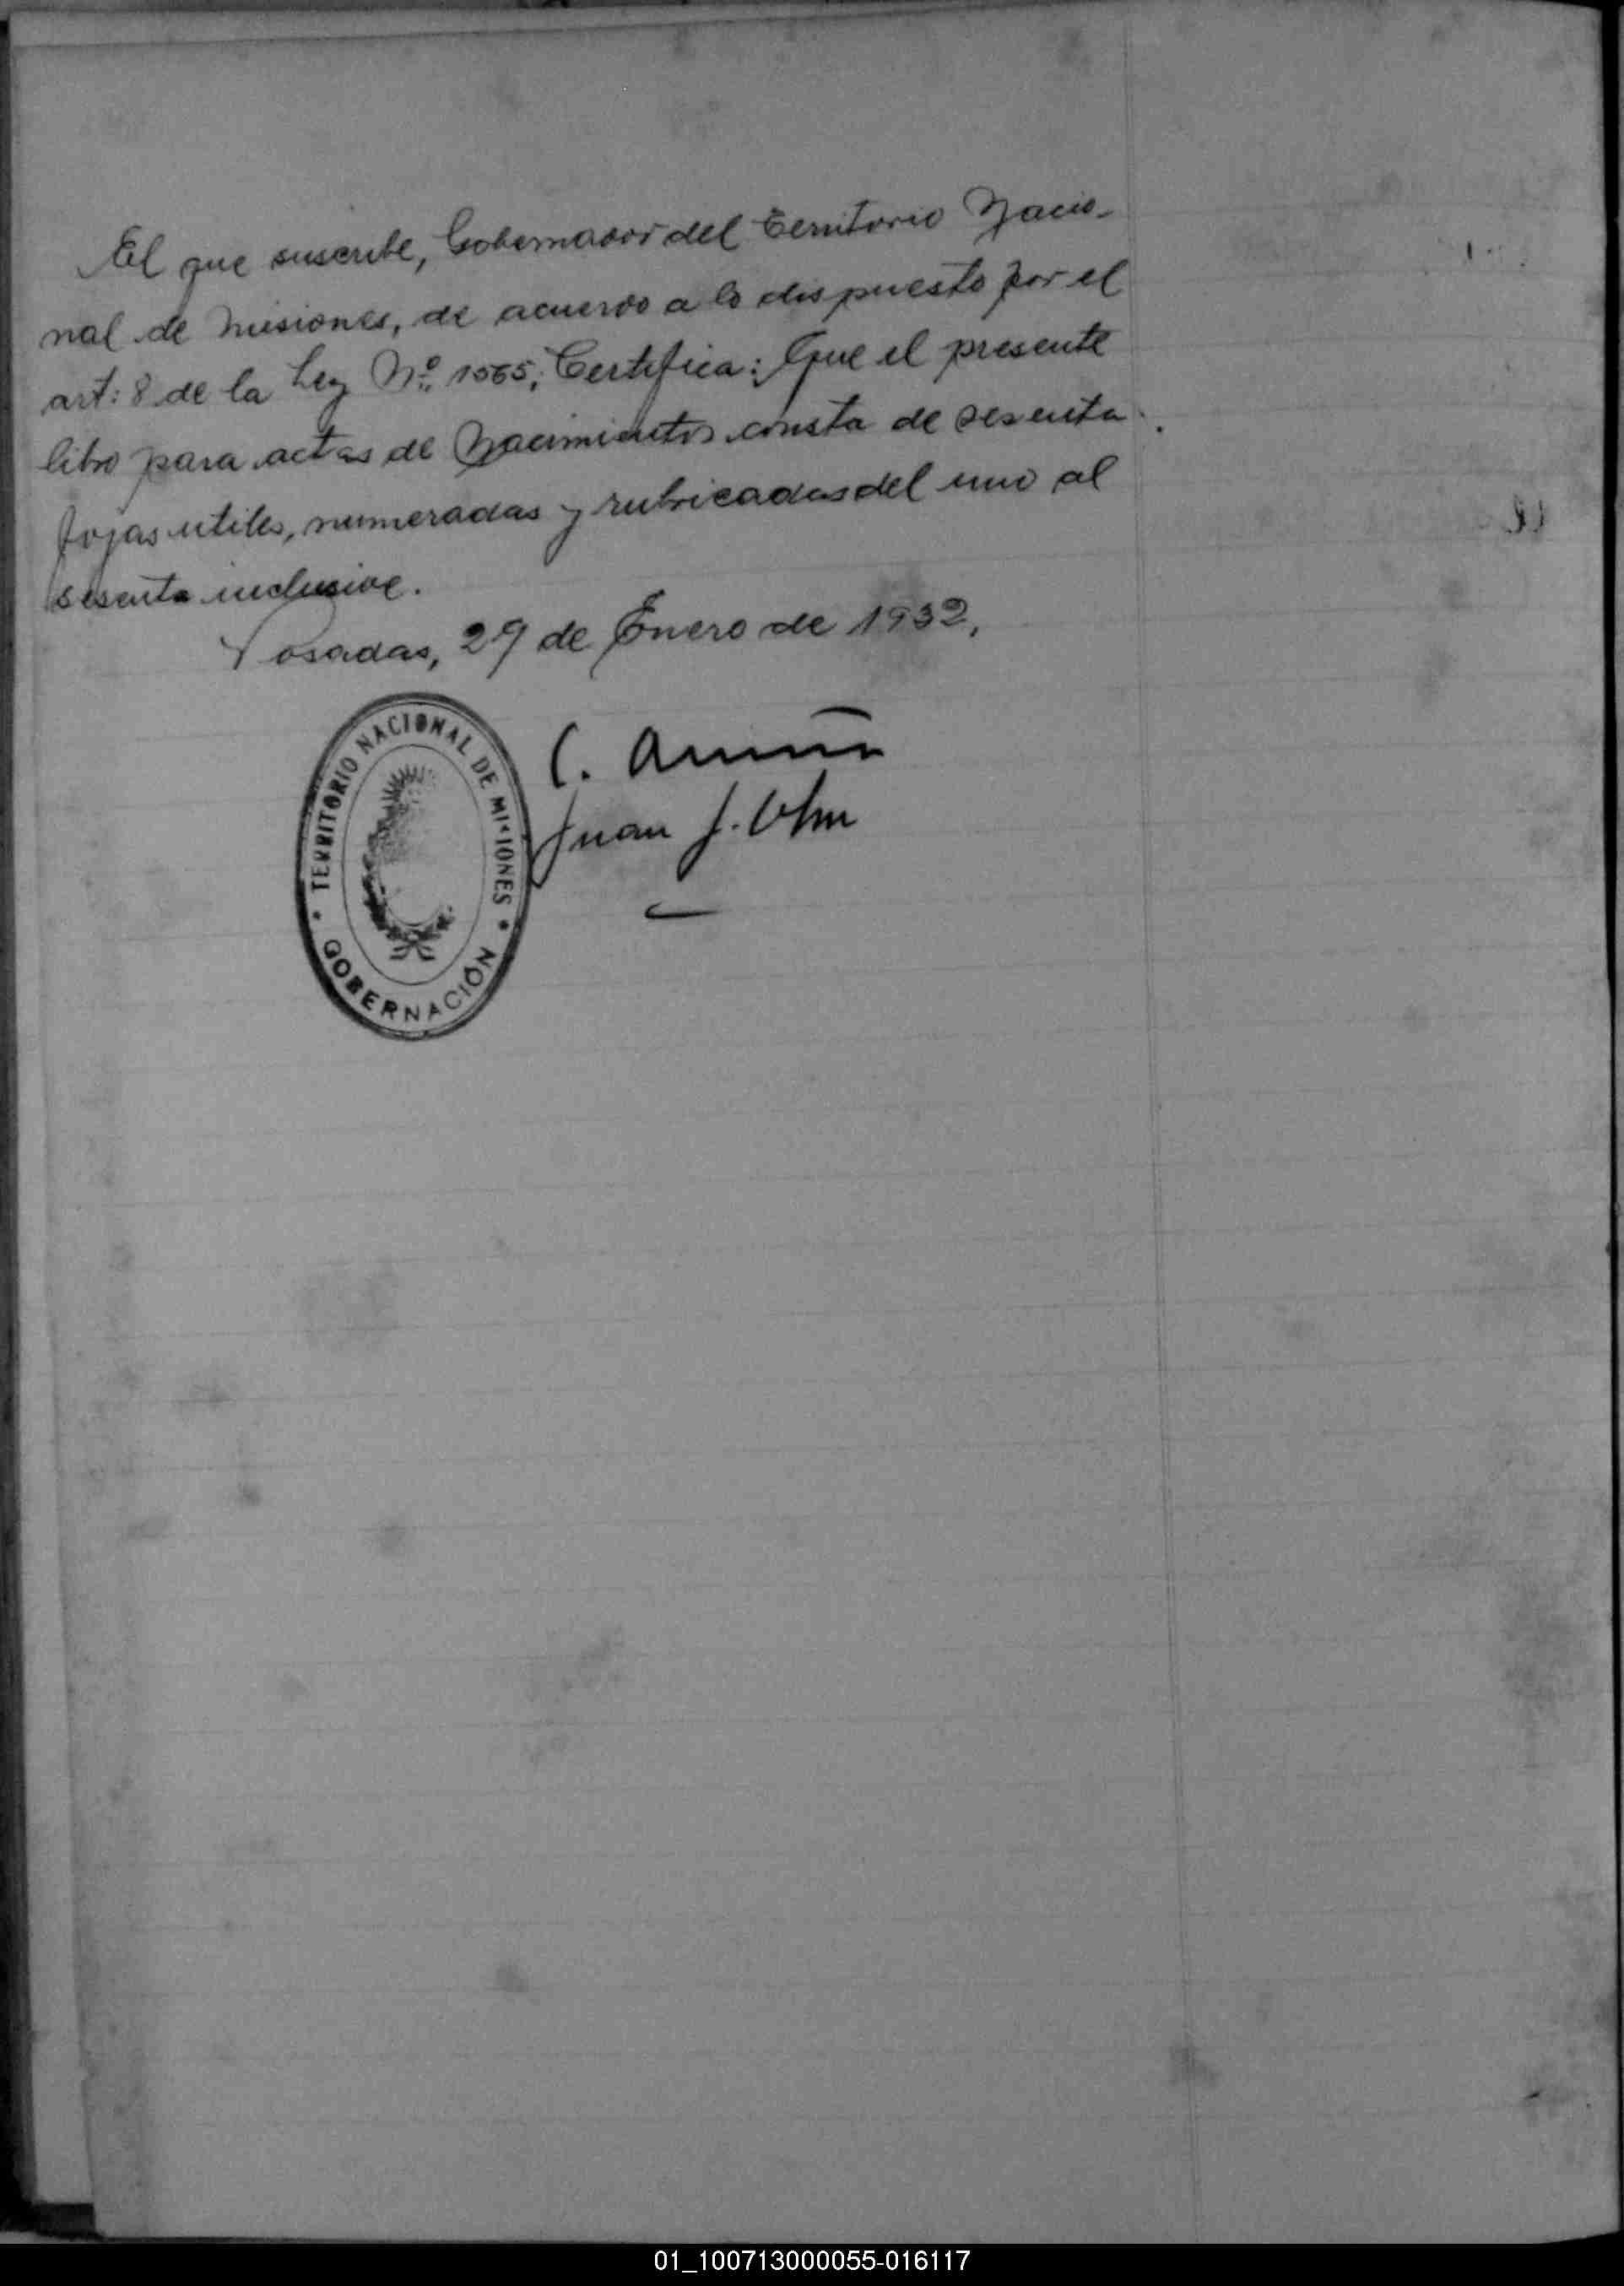 El que suscribe, Gobernador del Territorio Nacio-
nal de Misiones, de acuerdo a lo dispuesto por el
art: 8 de la Ley Nº 1565; Certifica: Que el presente
libro para actas de Nacimientos consta de sesenta
fojas utiles, numeradas y rubricadas del uno al
sesenta inclusive.
Posadas, 29 de Enero de 1932,
TERRITORIO NACIONAL DE MISIONES
GOBERNACIÓN
C.
Juan J.
01_100713000055-016117